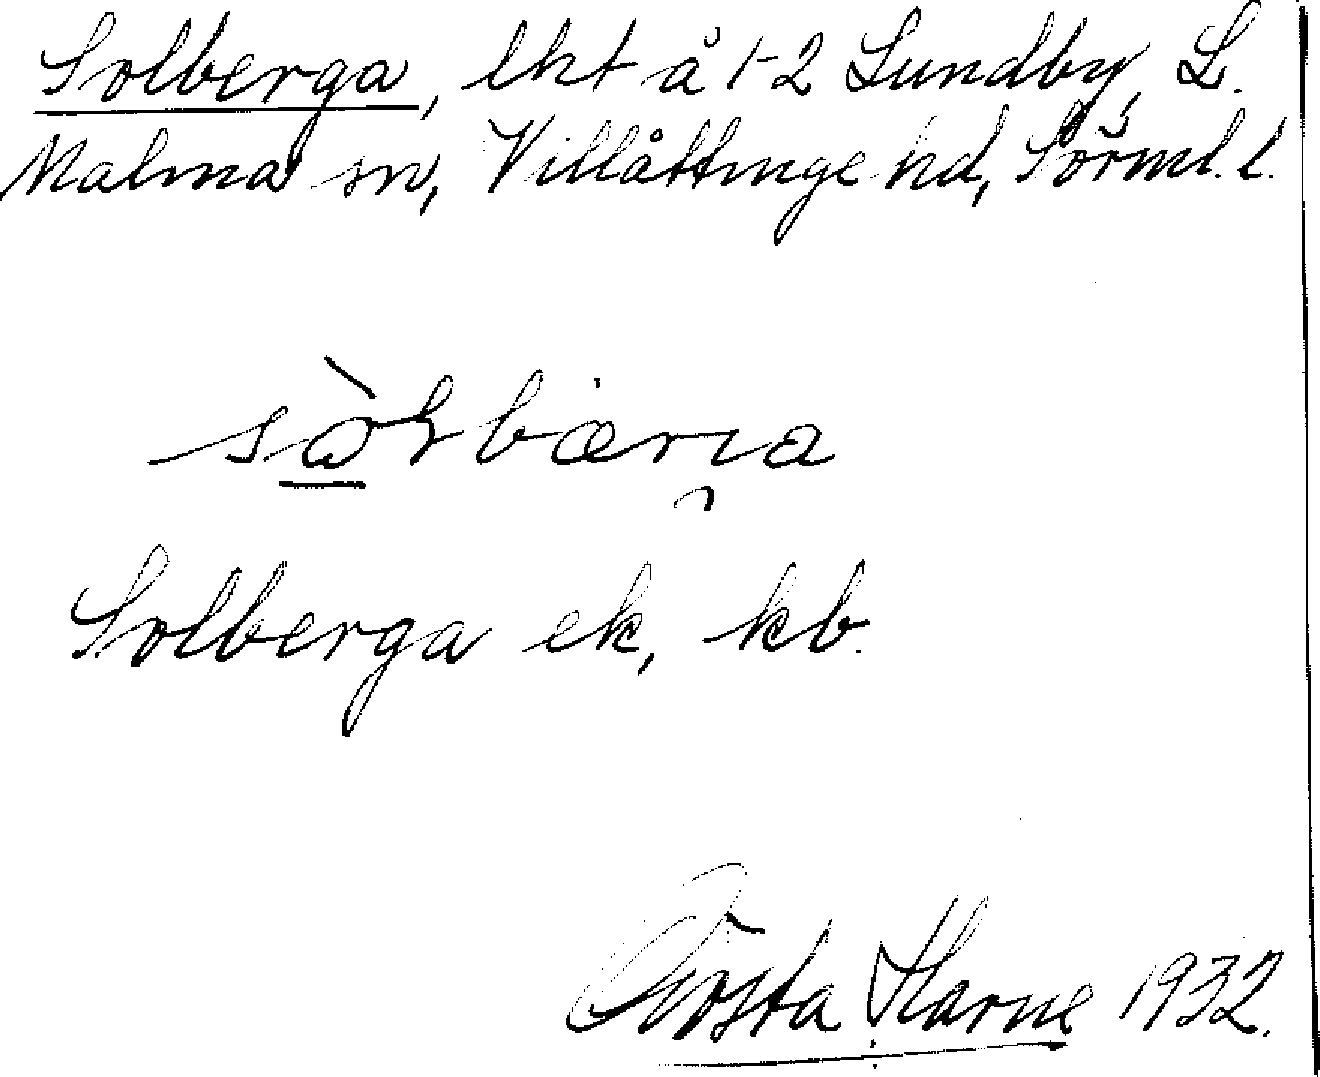 Solberga, lht å 1-2 Lundby, L.
Malma sn, Villåttinge hd, Sörml. l.
Solberga ek, kb.
Gösta Harne 1932.